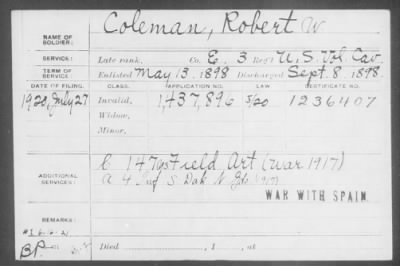 NAME OF SOLDIER: Coleman, Robert W.
SERVICE: Late rank, Co. E. 3 Reg't U.S. Vol. Cav.
TERM OF SERVICE: Enlisted May 13, 1898 Discharged Sept. 8, 1898.
DATE OF FILING. CLASS. APPLICATION NO. LAW CERTIFICATE NO.
1920, July 27 Invalid, 1,437,896 5/20 1236407
Widow,
Minor,
ADDITIONAL SERVICES: C. 147 Field Art (War 1917)
A 4 Inf S. Dak N. Gds
WAR WITH SPAIN.
REMARKS:
B.P.
Died , 1 , at